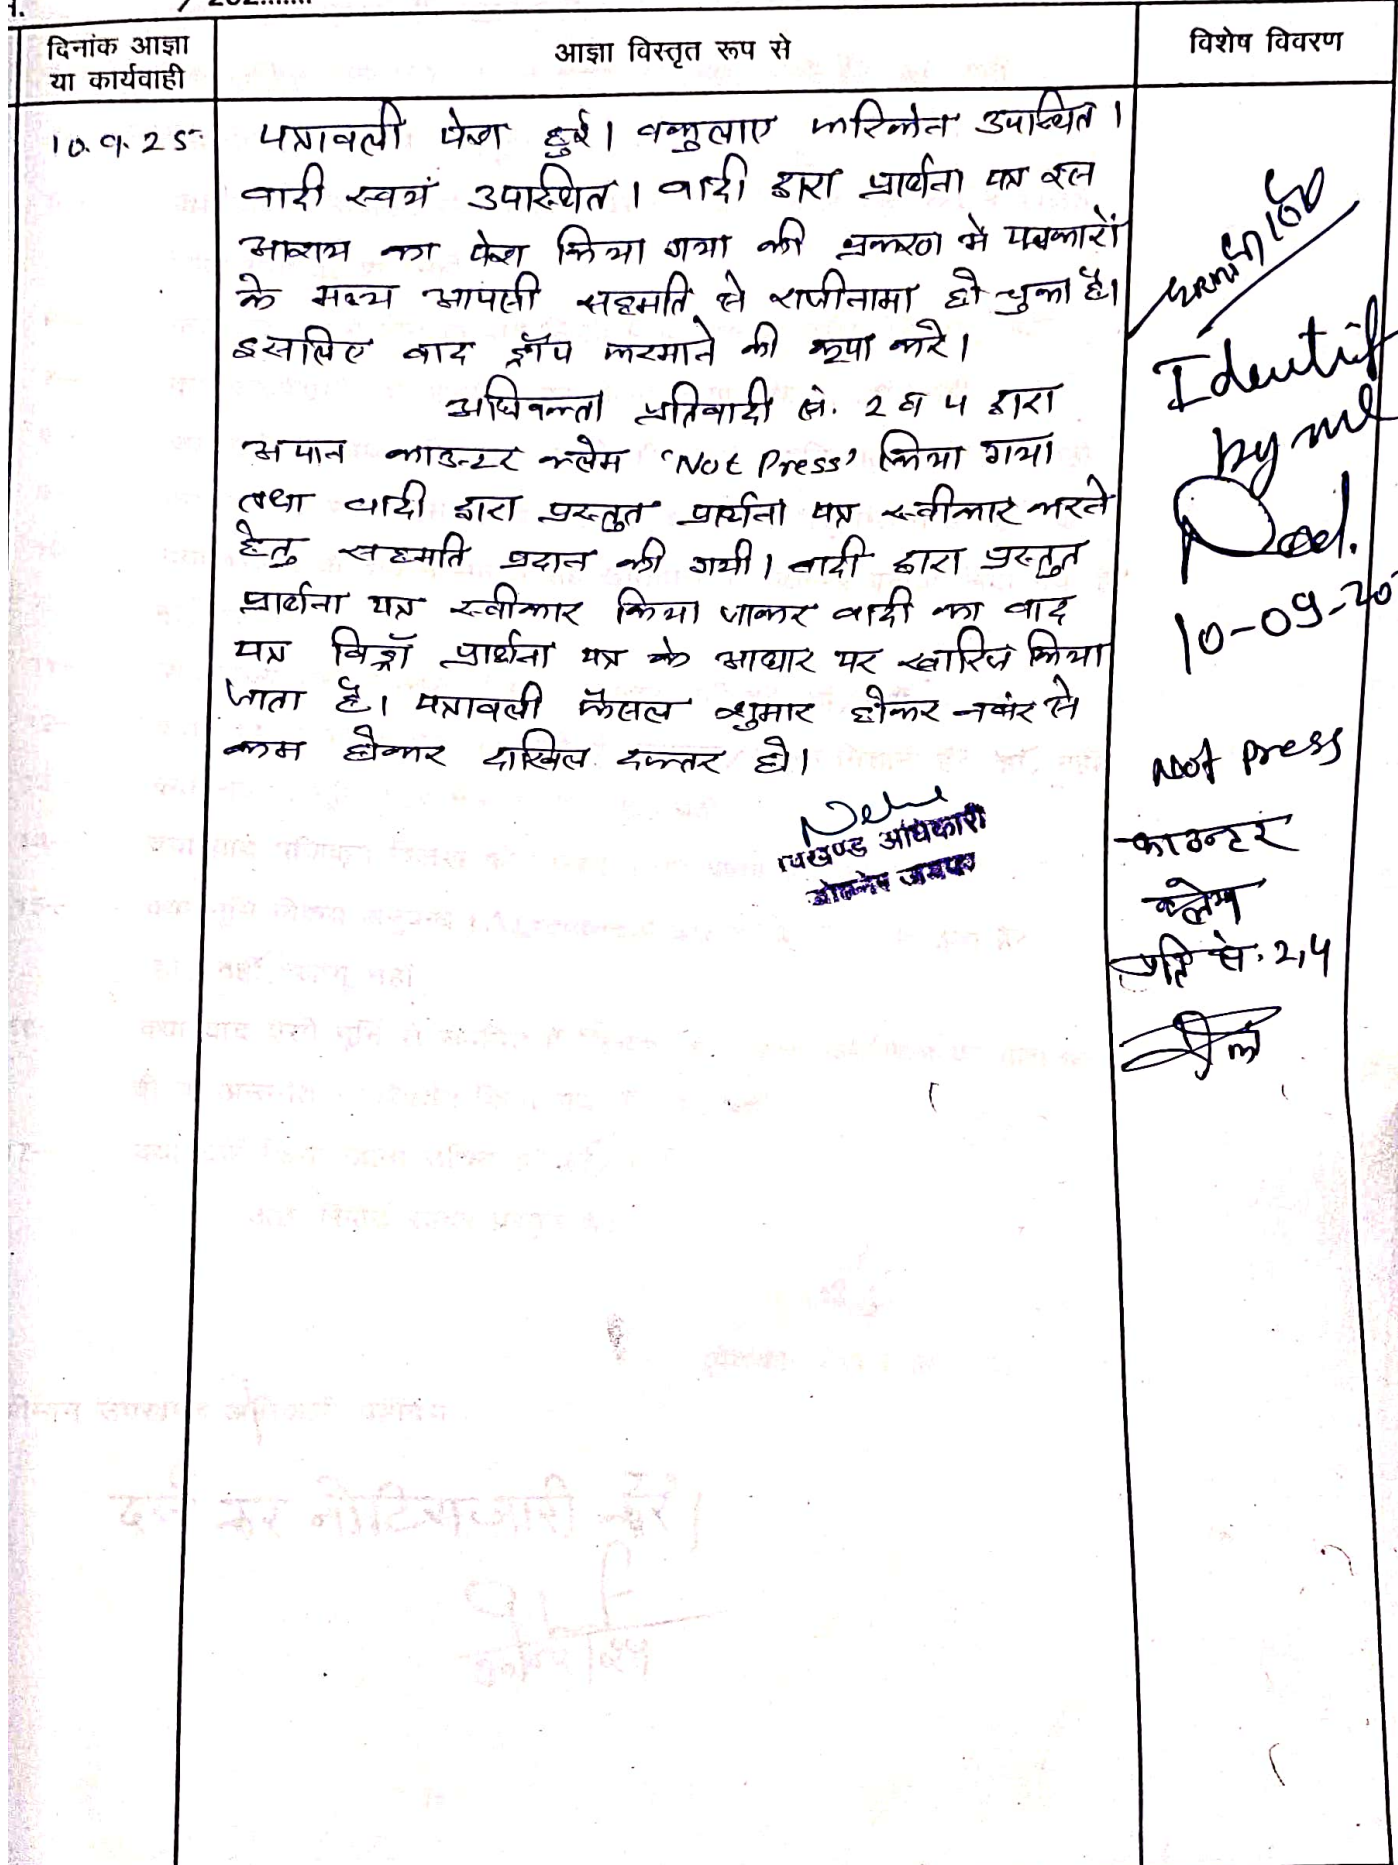 दिनांक आज्ञा
या कार्यवाही
आज्ञा विस्तृत रूप से
विशेष विवरण
10.9.25
पत्रावली पेश हुई। वकुलाए फरिकेन उपस्थित।
वादी स्वयं उपस्थित। वादी द्वारा प्रार्थना पत्र इस
आशय का पेश किया गया की प्रकरण मे पक्षकारों
के मध्य आपसी सहमति से राजीनामा हो चुका है।
इसलिए वाद ड्रॉप फरमाने की कृपा करे।
अधिवक्ता प्रतिवादी सं. 2 व 4 द्वारा
अपान काउन्टर क्लेम 'Not Press' किया गया
तथा वादी द्वारा प्रस्तुत प्रार्थना पत्र स्वीकार करने
हेतु सहमति प्रदान की गयी। वादी द्वारा प्रस्तुत
प्रार्थना पत्र स्वीकार किया जाकर वादी का वाद
पत्र विड्रॉ प्रार्थना पत्र के आधार पर खारिज किया
जाता है। पत्रावली फैसल शुमार होकर नम्बर से
कम होकर दाखिल दफ्तर हो।
Identif
by me
10-09-20
Not press
काउन्टर
क्लेम
प्रति सं. 2,4